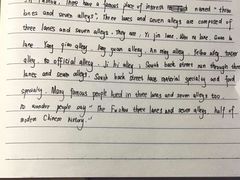 In Fuzhou, There have a famous place of interest named "three
lanes and seven alleys". Three lanes and seven alleys are composed of
three lanes and seven alleys. They are, Yi jin lane, Wen ru lane, Guan lu
lane, Yang qiao alley, Lang guan alley, An min alley,
alley, to official alley, Ji bi alley, South back street run through three
lanes and seven alleys. South back street have material specialty and food
specialty. Many famous people lived in three lanes and seven alleys too.
so wonder people say " The Fuzhou three lanes and seven alleys, half of
modern Chinese history."